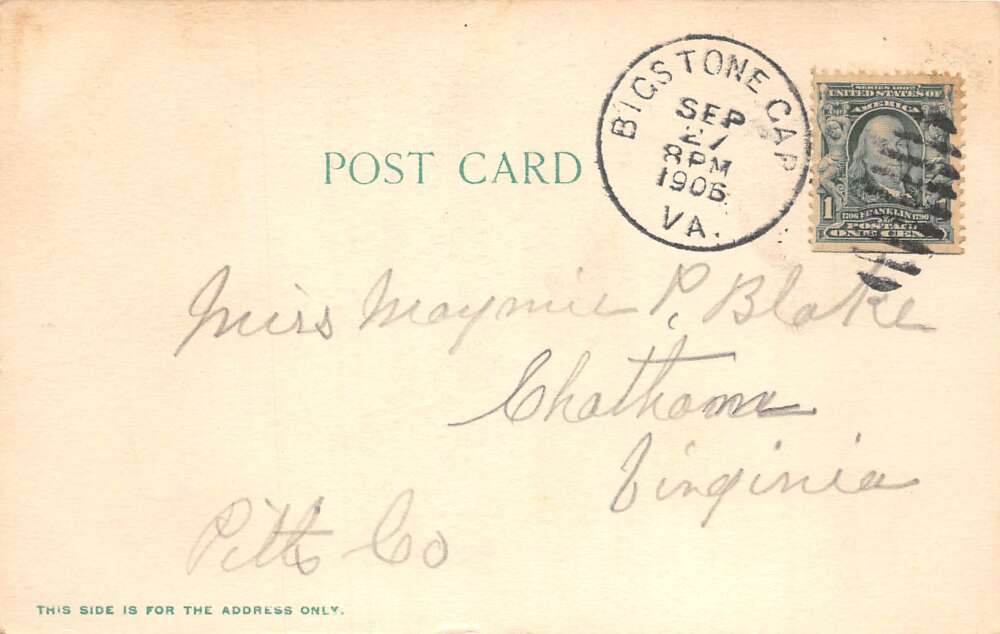 POST CARD
BIG STONE GAP
SEP
27
8 PM
1906
VA.
SERIES 1902
UNITED STATES OF
AMERICA
1
1706 FRANKLIN 1790
POSTAGE
ONE CENT
Miss Maymie P. Blake
Chatham
Virginia
Pitts Co
THIS SIDE IS FOR THE ADDRESS ONLY.